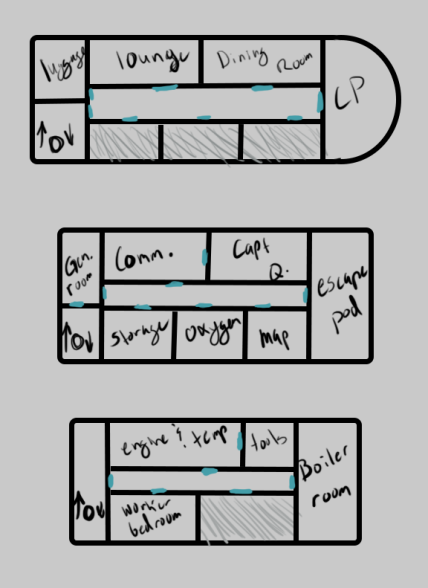 luggage
lounge
Dining
Room
CP
↑O↓
Gen.
room
Comm.
Capt
Q.
escape
pod
↑O↓
storage
oxygen
map
engine & temp
tools
Boiler
room
↑O↓
worker
bedroom